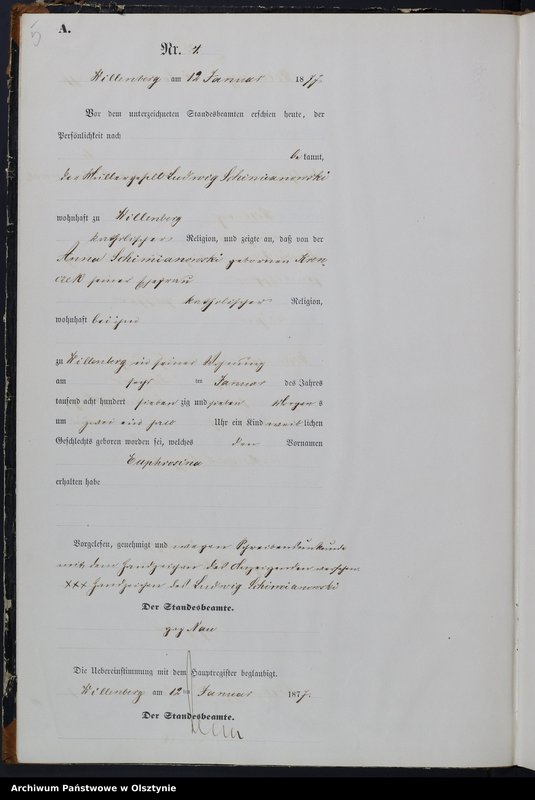 A.
5
Nr. 4.
Willenberg am 12 Januar 1877.
Vor dem unterzeichneten Standesbeamten erschien heute, der
Persönlichkeit nach
be kannt,
der Müllergesell Ludwig Schimianowski
wohnhaft zu Willenberg
katholischer Religion, und zeigte an, daß von der
Anna Schimianowski gebornen
seiner Ehefrau
katholischer Religion,
wohnhaft bei ihm
zu Willenberg in seiner Wohnung
am sechs ten Januar des Jahres
tausend acht hundert sieben zig und sieben Morgens
um zwei ein halb Uhr ein Kind weib lichen
Geschlechts geboren worden sei, welches den Vornamen
Euphrosina
erhalten habe
Vorgelesen, genehmigt und wegen Schreibensunkunde
mit dem Handzeichen des Anzeigenden versehen
××× Handzeichen des Ludwig Schimianowski
Der Standesbeamte.
gez Nau
Die Uebereinstimmung mit dem Hauptregister beglaubigt.
Willenberg am 12 ten Januar 1877.
Der Standesbeamte.
Archiwum Państwowe w Olsztynie